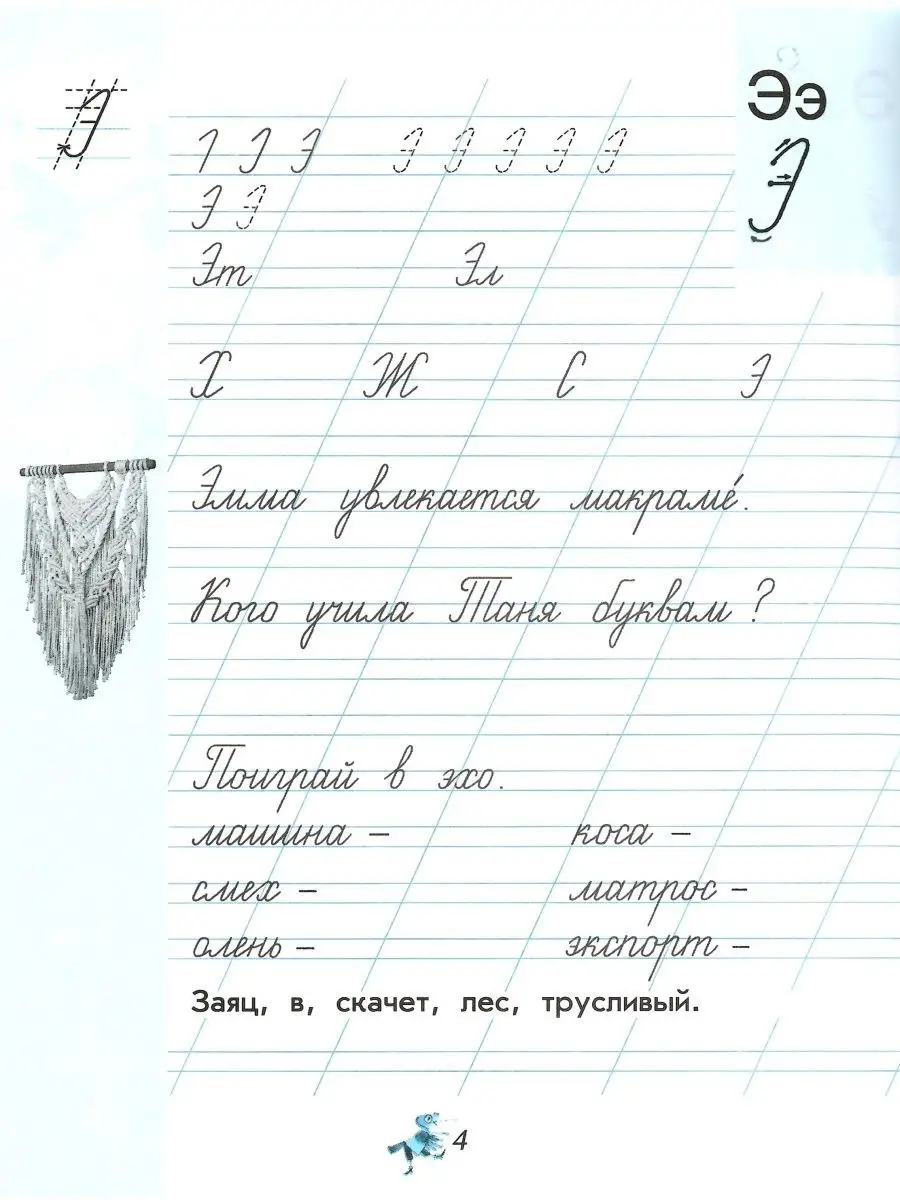 Ээ
Э
Э
1 Э Э Э Э Э Э Э
Э Э
Эт Эл
Х Ж С Э
Эмма увлекается макраме́.
Кого учила Таня буквам?
Поиграй в эхо.
машина – коса –
смех – матрос –
олень – экспорт –
Заяц, в, скачет, лес, трусливый.
4